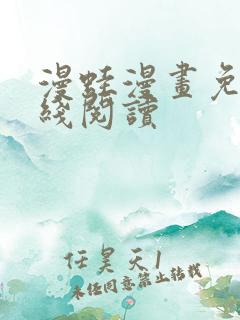 漫蛙漫畫免
綫閱讀
任昊天1
未经同意禁止转载